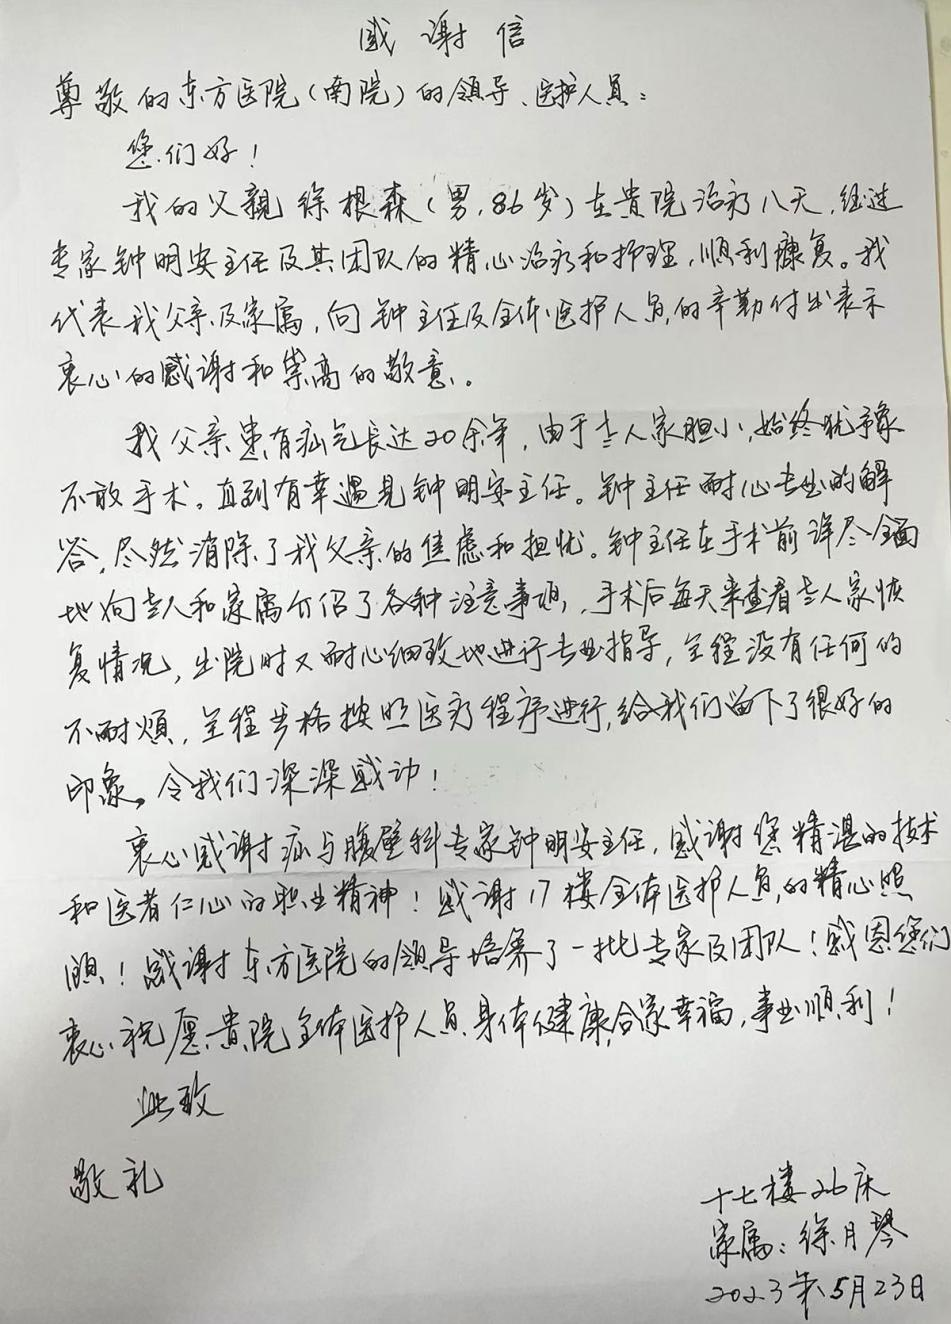 感谢信
尊敬的东方医院(南院)的领导、医护人员:
您们好!
我的父親徐根森(男,86岁)在貴院治疗八天,经过
专家钟明安主任及其团队的精心治疗和护理,顺利康复。我
代表我父亲及家属,向钟主任及全体医护人员的辛勤付出表示
衷心的感谢和崇高的敬意。
我父亲患有疝气长达20余年,由于老人家胆小,始终犹豫
不敢手术。直到有幸遇见钟明安主任。钟主任耐心专业的解
答,尽然消除了我父亲的焦虑和担忧。钟主任在手术前详尽全面
地向老人和家属介绍了各种注意事项,手术后每天来查看老人家恢
复情况,出院时又耐心细致地进行专业指导,全程没有任何的
不耐烦,全程严格按照医疗程序进行,给我们留下了很好的
印象。令我们深深感动!
衷心感谢疝与腹壁科专家钟明安主任,感谢您精湛的技术
和医者仁心的职业精神!感谢17楼全体医护人员的精心照
顾!感谢东方医院的领导培养了一批专家及团队!感恩您们
衷心祝愿貴院全体医护人员身体健康,合家幸福,事业顺利!
此致
敬礼
十七楼26床
家属:徐月琴
2023年5月23日